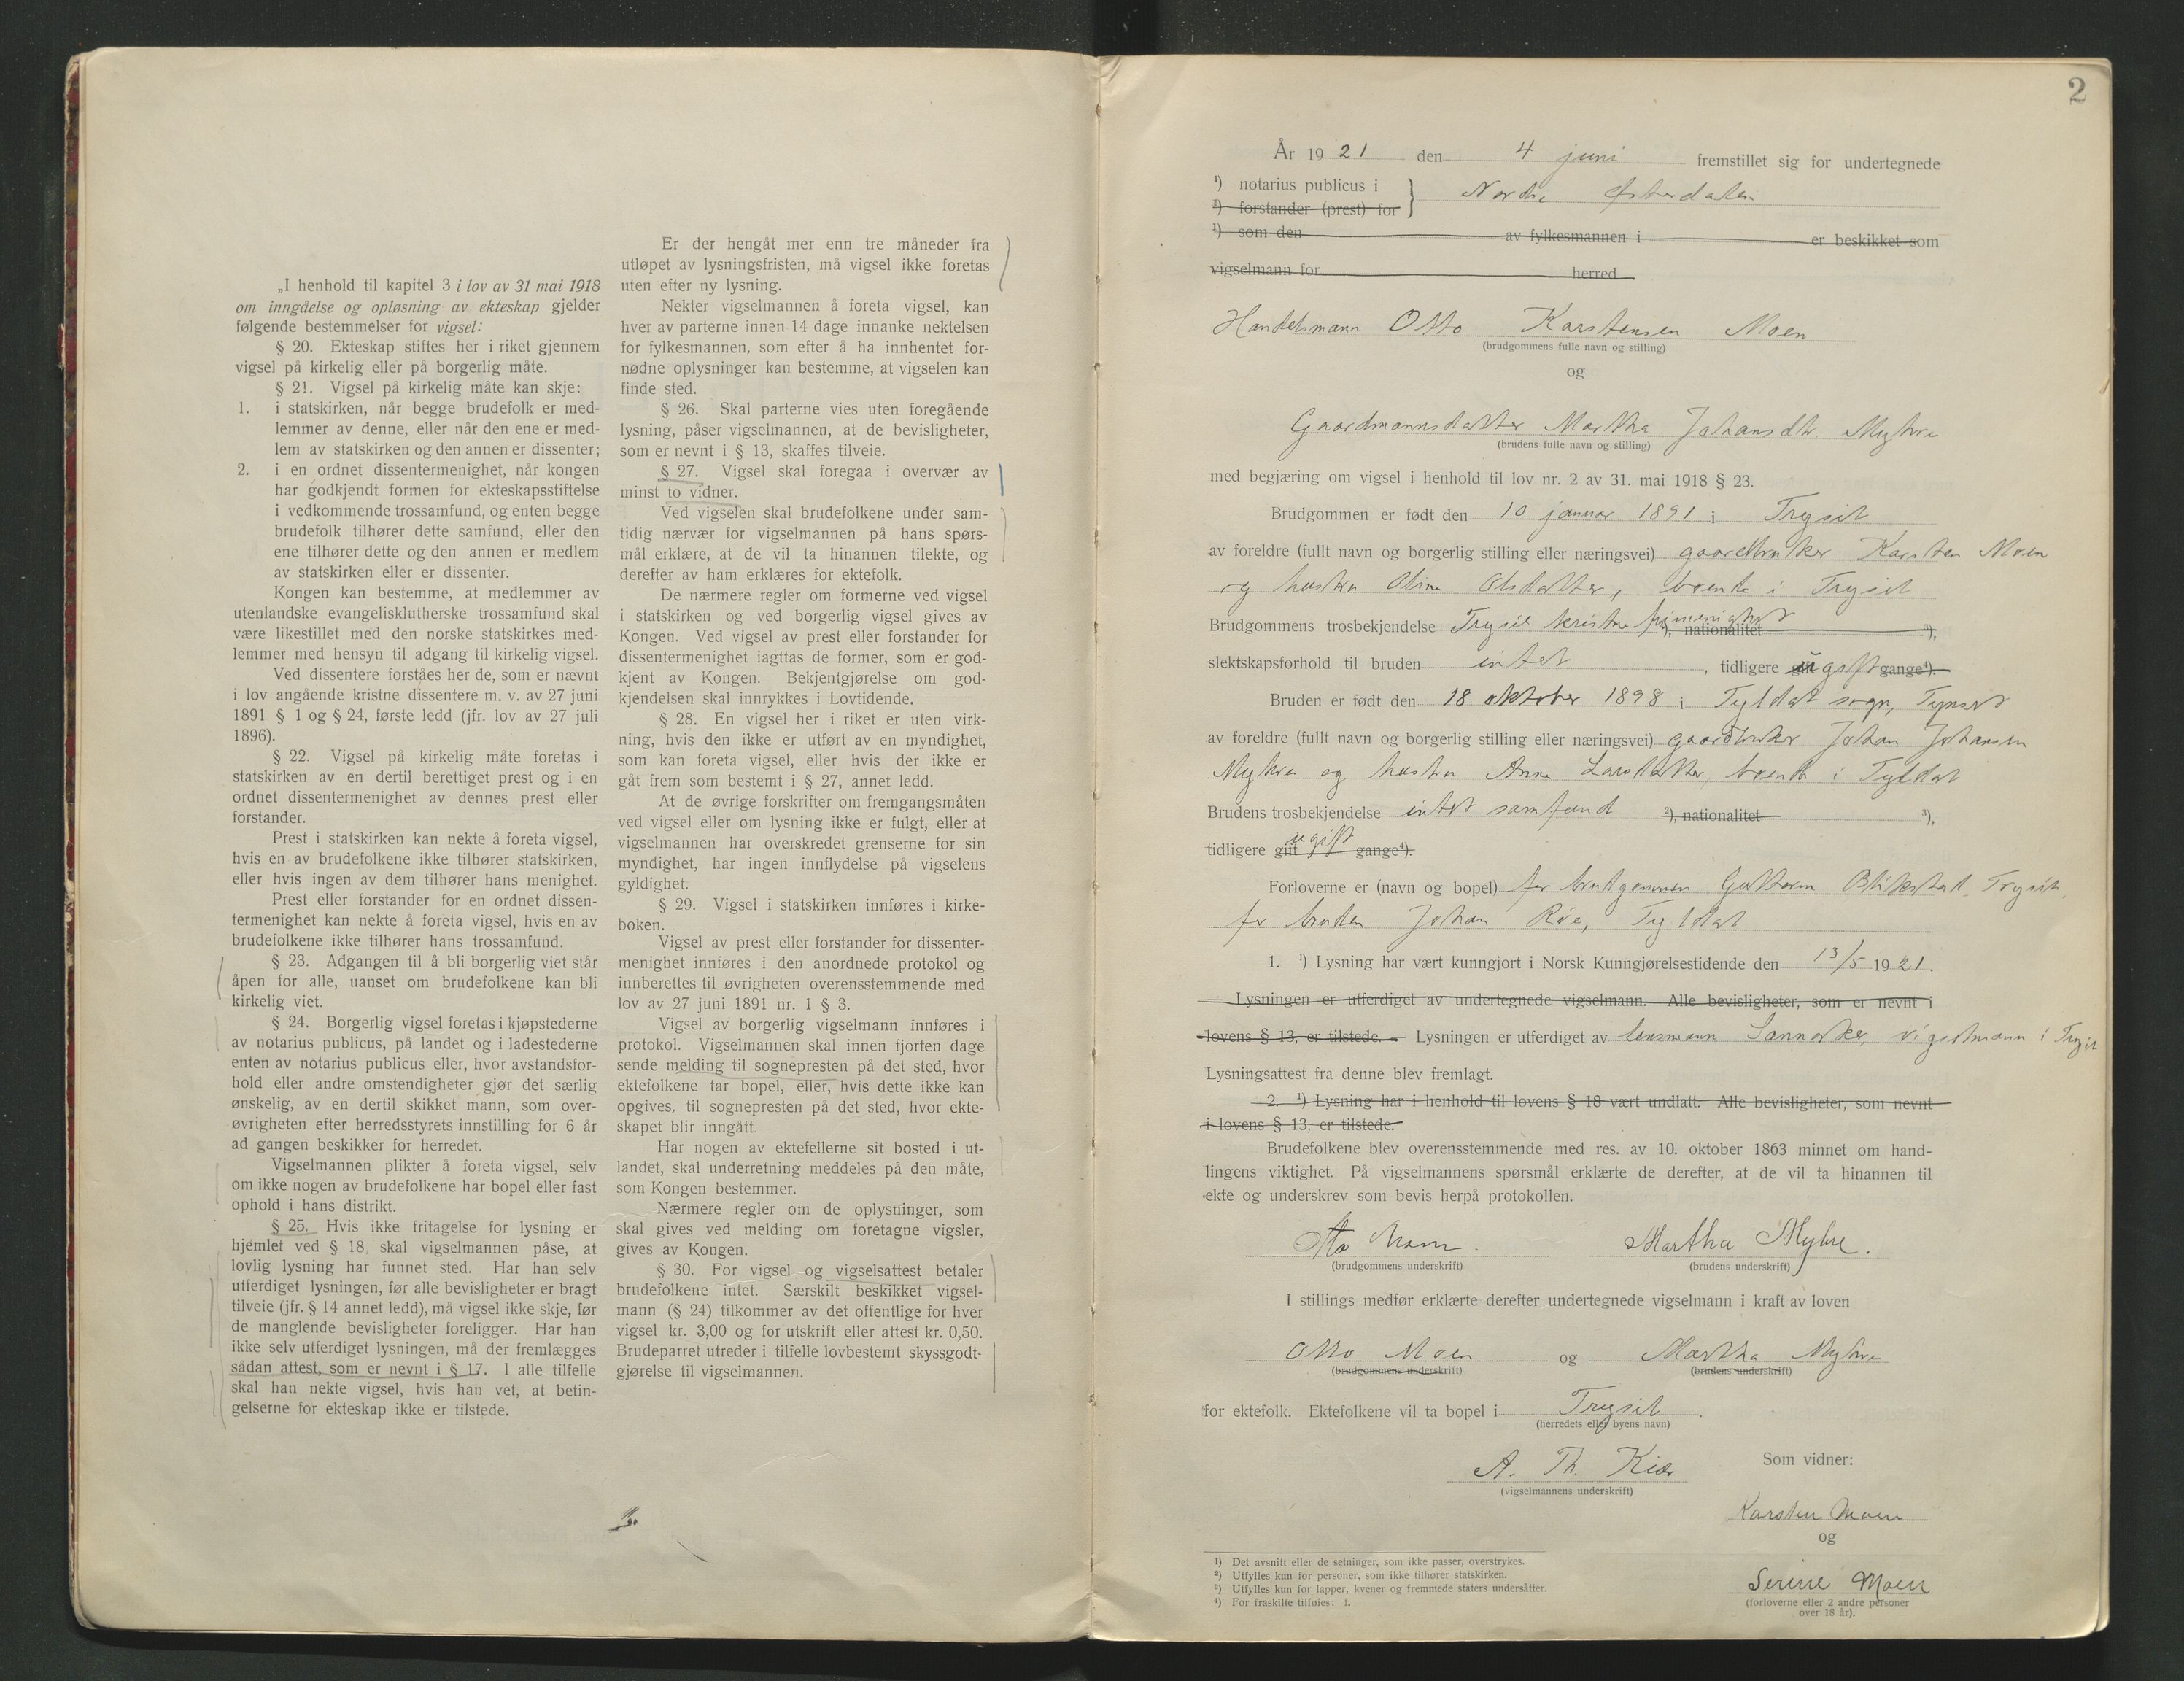 „I henhold til kapitel 3 i lov av 31 mai 1918
om inngåelse og opløsning av ekteskap gjelder
følgende bestemmelser for vigsel:
§ 20. Ekteskap stiftes her i riket gjennem
vigsel på kirkelig eller på borgerlig måte.
§ 21. Vigsel på kirkelig måte kan skje:
1. i statskirken, når begge brudefolk er med-
lemmer av denne, eller når den ene er med-
lem av statskirken og den annen er dissenter;
2. i en ordnet dissentermenighet, når kongen
har godkjendt formen for ekteskapsstiftelse
i vedkommende trossamfund, og enten begge
brudefolk tilhører dette samfund, eller den
ene tilhører dette og den annen er medlem
av statskirken eller er dissenter.
Kongen kan bestemme, at medlemmer av
utenlandske evangelisklutherske trossamfund skal
være likestillet med den norske statskirkes med-
lemmer med hensyn til adgang til kirkelig vigsel.
Ved dissentere forståes her de, som er nævnt
i lov angående kristne dissentere m. v. av 27 juni
1891 § 1 og § 24, første ledd (jfr. lov av 27 juli
1896).
§ 22. Vigsel på kirkelig måte foretas i
statskirken av en dertil berettiget prest og i en
ordnet dissentermenighet av dennes prest eller
forstander.
Prest i statskirken kan nekte å foreta vigsel,
hvis en av brudefolkene ikke tilhører statskirken,
eller hvis ingen av dem tilhører hans menighet.
Prest eller forstander for en ordnet dissen-
termenighet kan nekte å foreta vigsel, hvis en av
brudefolkene ikke tilhører hans trossamfund.
§ 23. Adgangen til å bli borgerlig viet står
åpen for alle, uanset om brudefolkene kan bli
kirkelig viet.
§ 24. Borgerlig vigsel foretas i kjøpstederne
av notarius publicus, på landet og i ladestederne
enten av notarius publicus eller, hvor avstandsfor-
hold eller andre omstendigheter gjør det særlig
ønskelig, av en dertil skikket mann, som over-
øvrigheten efter herredsstyrets innstilling for 6 år
ad gangen beskikker for herredet.
Vigselmannen plikter å foreta vigsel, selv
om ikke nogen av brudefolkene har bopel eller fast
ophold i hans distrikt.
§ 25. Hvis ikke fritagelse for lysning er
hjemlet ved § 18, skal vigselmannen påse, at
lovlig lysning har funnet sted. Har han selv
utferdiget lysningen, før alle bevisligheter er bragt
tilveie (jfr. § 14 annet ledd), må vigsel ikke skje, før
de manglende bevisligheter foreligger. Har han
ikke selv utferdiget lysningen, må der fremlægges
sådan attest, som er nevnt i § 17. I alle tilfelle
skal han nekte vigsel, hvis han vet, at betin-
gelserne for ekteskap ikke er tilstede.
Er der hengåt mer enn tre måneder fra
utløpet av lysningsfristen, må vigsel ikke foretas
uten efter ny lysning.
Nekter vigselmannen å foreta vigsel, kan
hver av parterne innen 14 dage innanke nektelsen
for fylkesmannen, som efter å ha innhentet for-
nødne oplysninger kan bestemme, at vigselen kan
finde sted.
§ 26. Skal parterne vies uten foregående
lysning, påser vigselmannen, at de bevisligheter,
som er nevnt i § 13, skaffes tilveie.
§ 27. Vigsel skal foregaa i overvær av
minst to vidner.
Ved vigselen skal brudefolkene under sam-
tidig nærvær for vigselmannen på hans spørs-
mål erklære, at de vil ta hinannen tilekte, og
derefter av ham erklæres for ektefolk.
De nærmere regler om formerne ved vigsel
i statskirken og ved borgerlig vigsel gives av
Kongen. Ved vigsel av prest eller forstander for
dissentermenighet iagttas de former, som er god-
kjent av Kongen. Bekjentgjørelse om god-
kjendelsen skal innrykkes i Lovtidende.
§ 28. En vigsel her i riket er uten virk-
ning, hvis den ikke er utført av en myndighet,
som kan foreta vigsel, eller hvis der ikke er
gåt frem som bestemt i § 27, annet ledd.
At de øvrige forskrifter om fremgangsmåten
ved vigsel eller om lysning ikke er fulgt, eller at
vigselmannen har overskredet grenserne for sin
myndighet, har ingen innflydelse på vigselens
gyldighet.
§ 29. Vigsel i statskirken innføres i kirke-
boken.
Vigsel av prest eller forstander for dissenter-
menighet innføres i den anordnede protokol og
innberettes til øvrigheten overensstemmende med
lov av 27 juni 1891 nr. 1 § 3.
Vigsel av borgerlig vigselmann innføres i
protokol. Vigselmannen skal innen fjorten dage
sende melding til sognepresten på det sted, hvor
ektefolkene tar bopel, eller, hvis dette ikke kan
opgives, til sognepresten på det sted, hvor ekte-
skapet blir inngått
Har nogen av ektefellerne sit bosted i ut-
landet, skal underretning meddeles på den måte,
som Kongen bestemmer.
Nærmere regler om de oplysninger, som
skal gives ved melding om foretagne vigsler,
gives av Kongen.
§ 30. For vigsel og vigselsattest betaler
brudefolkene intet. Særskilt beskikket vigsel-
mann (§ 24) tilkommer av det offentlige for hver
vigsel kr. 3,00 og for utskrift eller attest kr. 0,50.
Brudeparret utreder i tilfelle lovbestemt skyssgodt-
gjørelse til vigselmannen.
2
År 1921 den 4 juni fremstillet sig for undertegnede
¹) notarius publicus i
¹) forstander (prest) for } Nordre Østerdalen
¹) som den av fylkesmannen i er beskikket som
vigselmann for herred
Handelsmann Otto Karstensen Moen
(brudgommens fulle navn og stilling)
og
Gaardmannsdatter Martha Johansdtr. Myhre
(brudens fulle navn og stilling)
med begjæring om vigsel i henhold til lov nr. 2 av 31. mai 1918 § 23.
Brudgommen er født den 10 januar 1891 i Trysil
av foreldre (fullt navn og borgerlig stilling eller næringsvei) gaardbruker Karsten Moen
og hustru Oline Olsdatter, boende i Trysil
Brudgommens trosbekjendelse Trysil kristne frimenighet ²), nationalitet ³),
slektskapsforhold til bruden intet, tidligere gift ugift gange⁴).
Bruden er født den 18 oktober 1898 i Tyldal sogn, Tynset
av foreldre (fullt navn og borgerlig stilling eller næringsvei) gaardbruker Johan Johansen
Myhre og hustru Anne Larsdatter, boende i Tyldal
Brudens trosbekjendelse intet samfund ²), nationalitet ³),
tidligere gift ugift gange⁴).
Forloverne er (navn og bopel) for brudgommen Guttorm Blikstad, Trysil,
for bruden Johan Røe, Tyldal
1. ¹) Lysning har vært kunngjort i Norsk Kunngjørelsestidende den 13/5 1921.
— Lysningen er utferdiget av undertegnede vigselmann. Alle bevisligheter, som er nevnt i
lovens § 13, er tilstede. — Lysningen er utferdiget av lensmann Sannæs, vigselmann i Trysil
Lysningsattest fra denne blev fremlagt.
2. ¹) Lysning har i henhold til lovens § 18 vært undlatt. Alle bevisligheter, som nevnt
i lovens § 13, er tilstede.
Brudefolkene blev overensstemmende med res. av 10. oktober 1863 minnet om hand-
lingens viktighet. På vigselmannens spørsmål erklærte de derefter, at de vil ta hinannen til
ekte og underskrev som bevis herpå protokollen.
Otto Moen. Martha Myhre.
(brudgommens underskrift) (brudens underskrift)
I stillings medfør erklærte derefter undertegnede vigselmann i kraft av loven
Otto Moen og Martha Myhre
(brudgommens underskrift) (brudens underskrift)
for ektefolk. Ektefolkene vil ta bopel i Trysil.
(herredets eller byens navn)
A. Th. Kiær
(vigselmannens underskrift)
Som vidner:
Karsten Moen
og
Serine Moen
(forloverne eller 2 andre personer
over 18 år).
¹) Det avsnitt eller de setninger, som ikke passer, overstrykes.
²) Utfylles kun for personer, som ikke tilhører statskirken.
³) Utfylles kun for lapper, kvener og fremmede staters undersåtter.
⁴) For fraskilte tilføies: f.